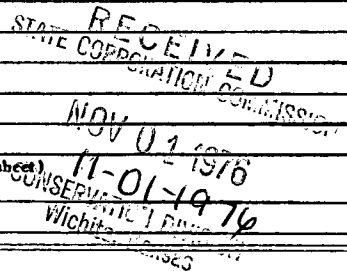 RECEIVED
STATE CORPORATION COMMISSION
NOV 01 1976
sheet)
11-01-1976
CONSERVATION DIVISION
Wichita, Kansas